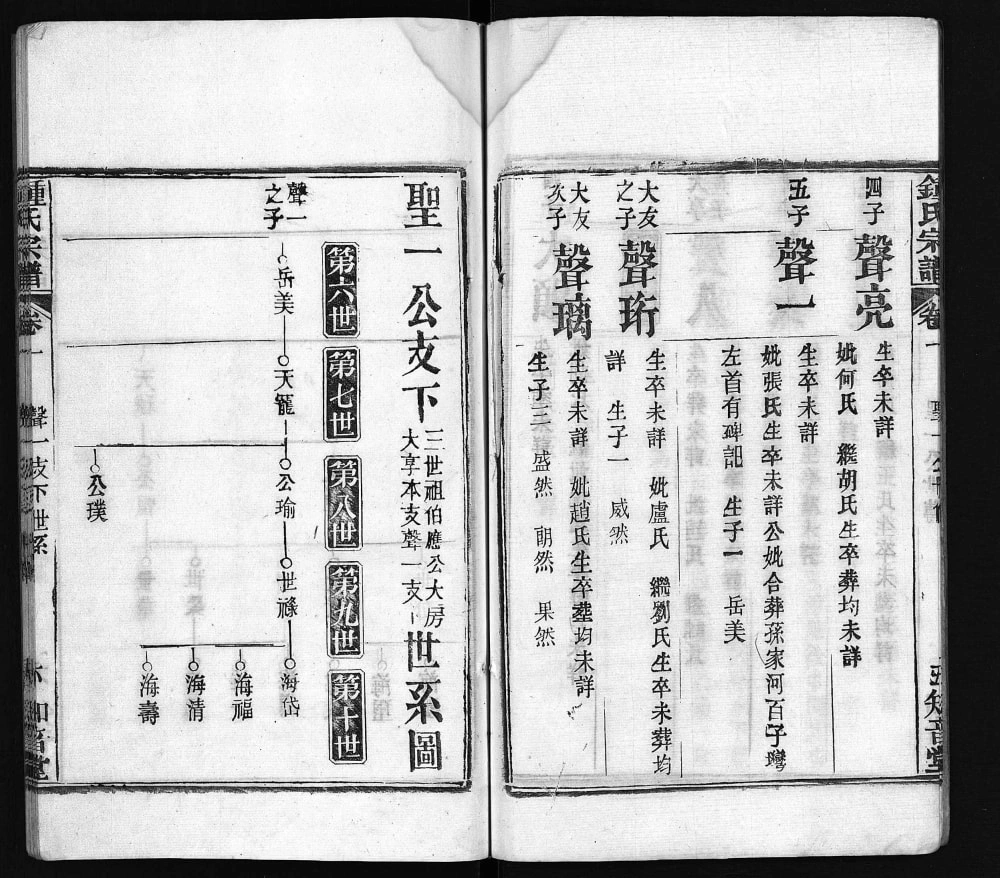 鍾氏宗譜
卷一
五 知音堂
四子 聲亮
生卒未詳
妣何氏 繼胡氏生卒葬均未詳
五子 聲一
生卒未詳
妣張氏生卒未詳公妣合葬孫家河百子灣
左首有碑記 生子一 岳美
大友之子 聲珩
生卒未詳 妣盧氏 繼劉氏生卒未葬均
詳 生子一 威然
大友次子 聲璃
生卒未詳 妣趙氏生卒塟均未詳
生子三 盛然 朗然 果然
聖一公支下
三世祖伯應公大房
大享本支聲一支下
世系圖
第六世
第七世
第八世
第九世
第十世
聲一之子
岳美
天寵
公瑜
公璞
世祿
海岱
海福
海清
海壽
鍾氏宗譜
卷一
聲一支下世系
六 知音堂